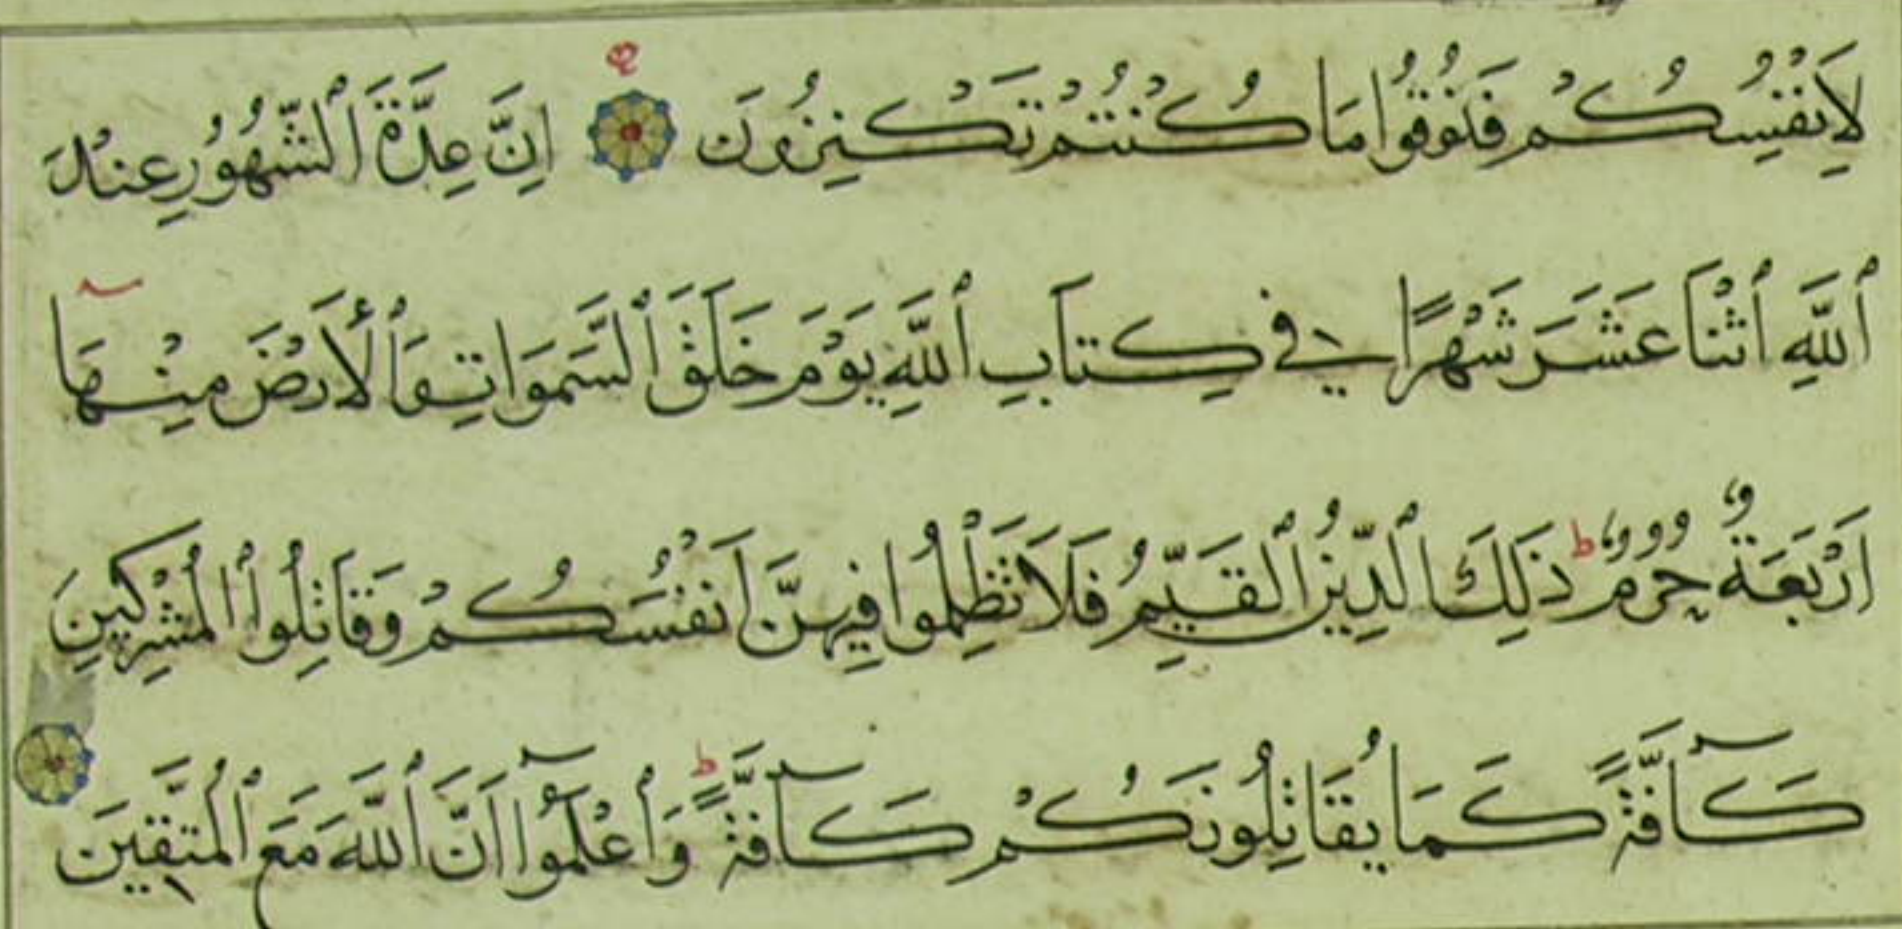 لِاَنْفُسِكُمْ فَذُوقُوا مَا كُنْتُمْ تَكْنِزُونَ اِنَّ عِدَّةَ ٱلشُّهُورِ عِنْدَ
ٱللَّهِ ٱثْنَا عَشَرَ شَهْرًا فِي كِتَابِ ٱللَّهِ يَوْمَ خَلَقَ ٱلسَّمَوَاتِ وَٱلْاَرْضَ مِنْهَا
اَرْبَعَةٌ حُرُمٌ ط ذَلِكَ ٱلدِّينُ ٱلْقَيِّمُ فَلَا تَظْلِمُوا فِيهِنَّ اَنْفُسَكُمْ وَقَاتِلُوا ٱلْمُشْرِكِينَ
كَآفَّةً كَمَا يُقَاتِلُونَكُمْ كَآفَّةً ط وَٱعْلَمُوٓا اَنَّ ٱللَّهَ مَعَ ٱلْمُتَّقِينَ